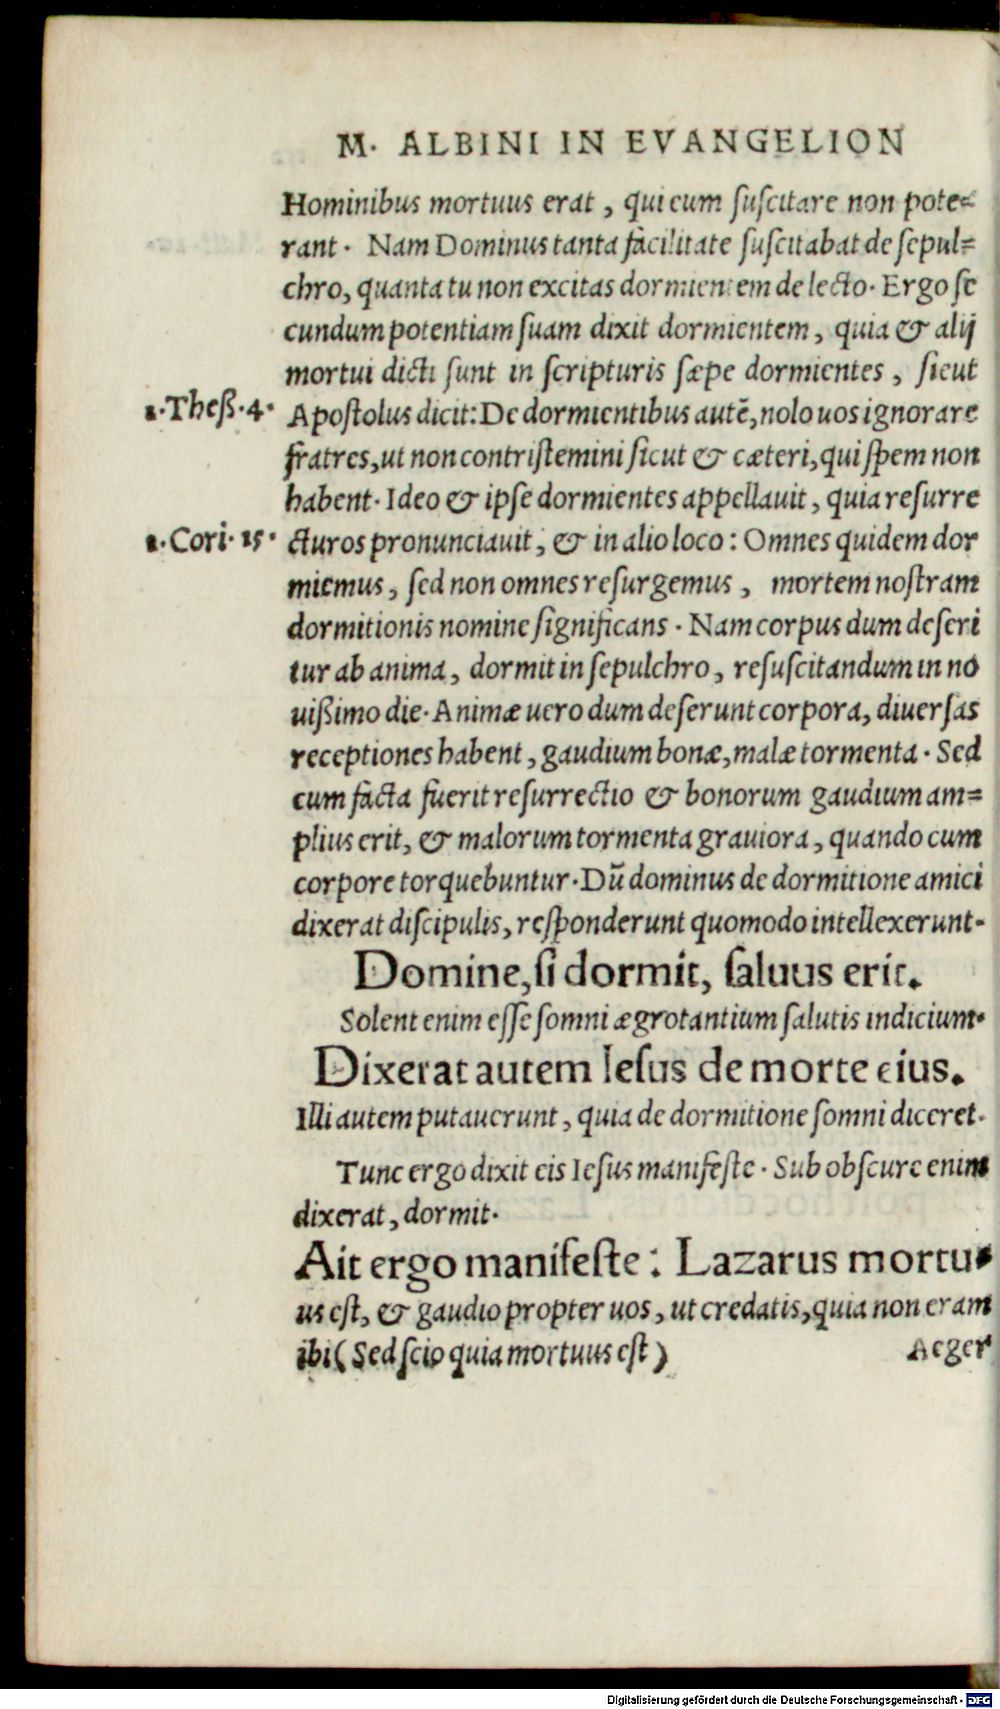 M. ALBINI IN EVANGELION
Hominibus mortuus erat, qui eum ſuſcitare non pote=
rant. Nam Dominus tanta facilitate ſuſcitabat de ſepul=
chro, quanta tu non excitas dormientem de lecto. Ergo ſe
cundum potentiam ſuam dixit dormientem, quia & alij
mortui dicti ſunt in ſcripturis ſæpe dormientes, ſicut
1. Theß. 4. Apoſtolus dicit: De dormientibus autē, nolo uos ignorare
fratres, ut non contriſtemini ſicut & cæteri, qui ſpem non
habent. Ideo & ipſe dormientes appellauit, quia reſurre
1. Cori. 15. cturos pronunciauit, & in alio loco: Omnes quidem dor
miemus, ſed non omnes reſurgemus, mortem noſtram
dormitionis nomine ſignificans. Nam corpus dum deſeri
tur ab anima, dormit in ſepulchro, reſuſcitandum in no
uißimo die. Animæ uero dum deſerunt corpora, diuerſas
receptiones habent, gaudium bonæ, malæ tormenta. Sed
cum facta fuerit reſurrectio & bonorum gaudium am=
plius erit, & malorum tormenta grauiora, quando cum
corpore torquebuntur. Dū dominus de dormitione amici
dixerat diſcipulis, reſponderunt quomodo intellexerunt.
Domine, ſi dormit, ſaluus erit.
Solent enim eſſe ſomni ægrotantium ſalutis indicium.
Dixerat autem Ieſus de morte eius.
Illi autem putauerunt, quia de dormitione ſomni diceret.
Tunc ergo dixit eis Ieſus manifeſte. Sub obſcure enim
dixerat, dormit.
Ait ergo manifeſte: Lazarus mortu=
us eſt, & gaudio propter uos, ut credatis, quia non eram
ibi (Sed ſcio quia mortuus eſt)
Aeger
Digitalisierung gefördert durch die Deutsche Forschungsgemeinschaft - DFG